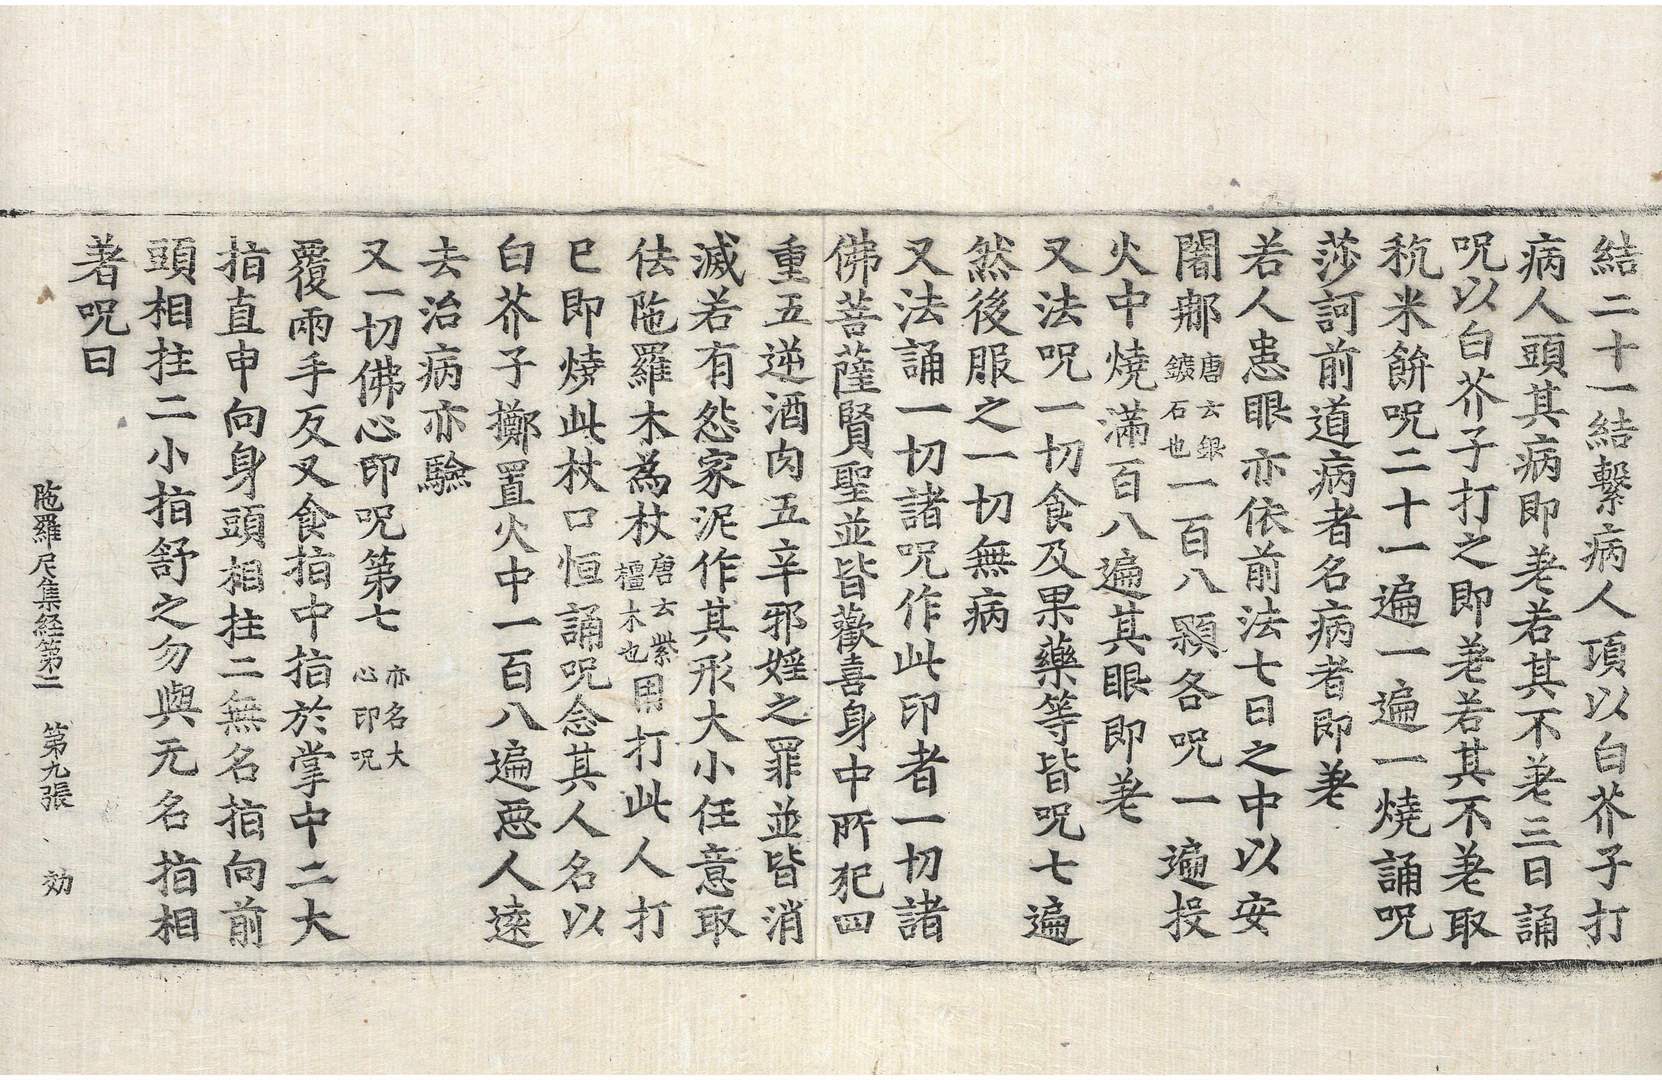 結二十一結繫病人項以白芥子打
病人頭其病即差若其不差三日誦
呪以白芥子打之即差若其不差取
秔米餅呪二十一遍一遍一燒誦呪
莎訶前道病者名病者即差
若人患眼亦依前法七日之中以安
闍郍唐云銀鑛石也一百八顆各呪一遍投
火中燒滿百八遍其眼即差
又法呪一切食及果藥等皆呪七遍
然後服之一切無病
又法誦一切諸呪作此印者一切諸
佛菩薩賢聖並皆歡喜身中所犯四
重五逆酒肉五辛邪婬之罪並皆消
滅若有怨家泥作其形大小任意取
佉陁羅木為杖唐云紫橿木也用打此人打
已即燒此杖口恒誦呪念其人名以
白芥子擲置火中一百八遍惡人遠
去治病亦驗
又一切佛心印呪第七亦名大心印呪
覆兩手反叉食指中指於掌中二大
指直申向身頭相拄二無名指向前
頭相拄二小指舒之勿與无名指相
著呪曰
陁羅尼集經第二　第九張　効